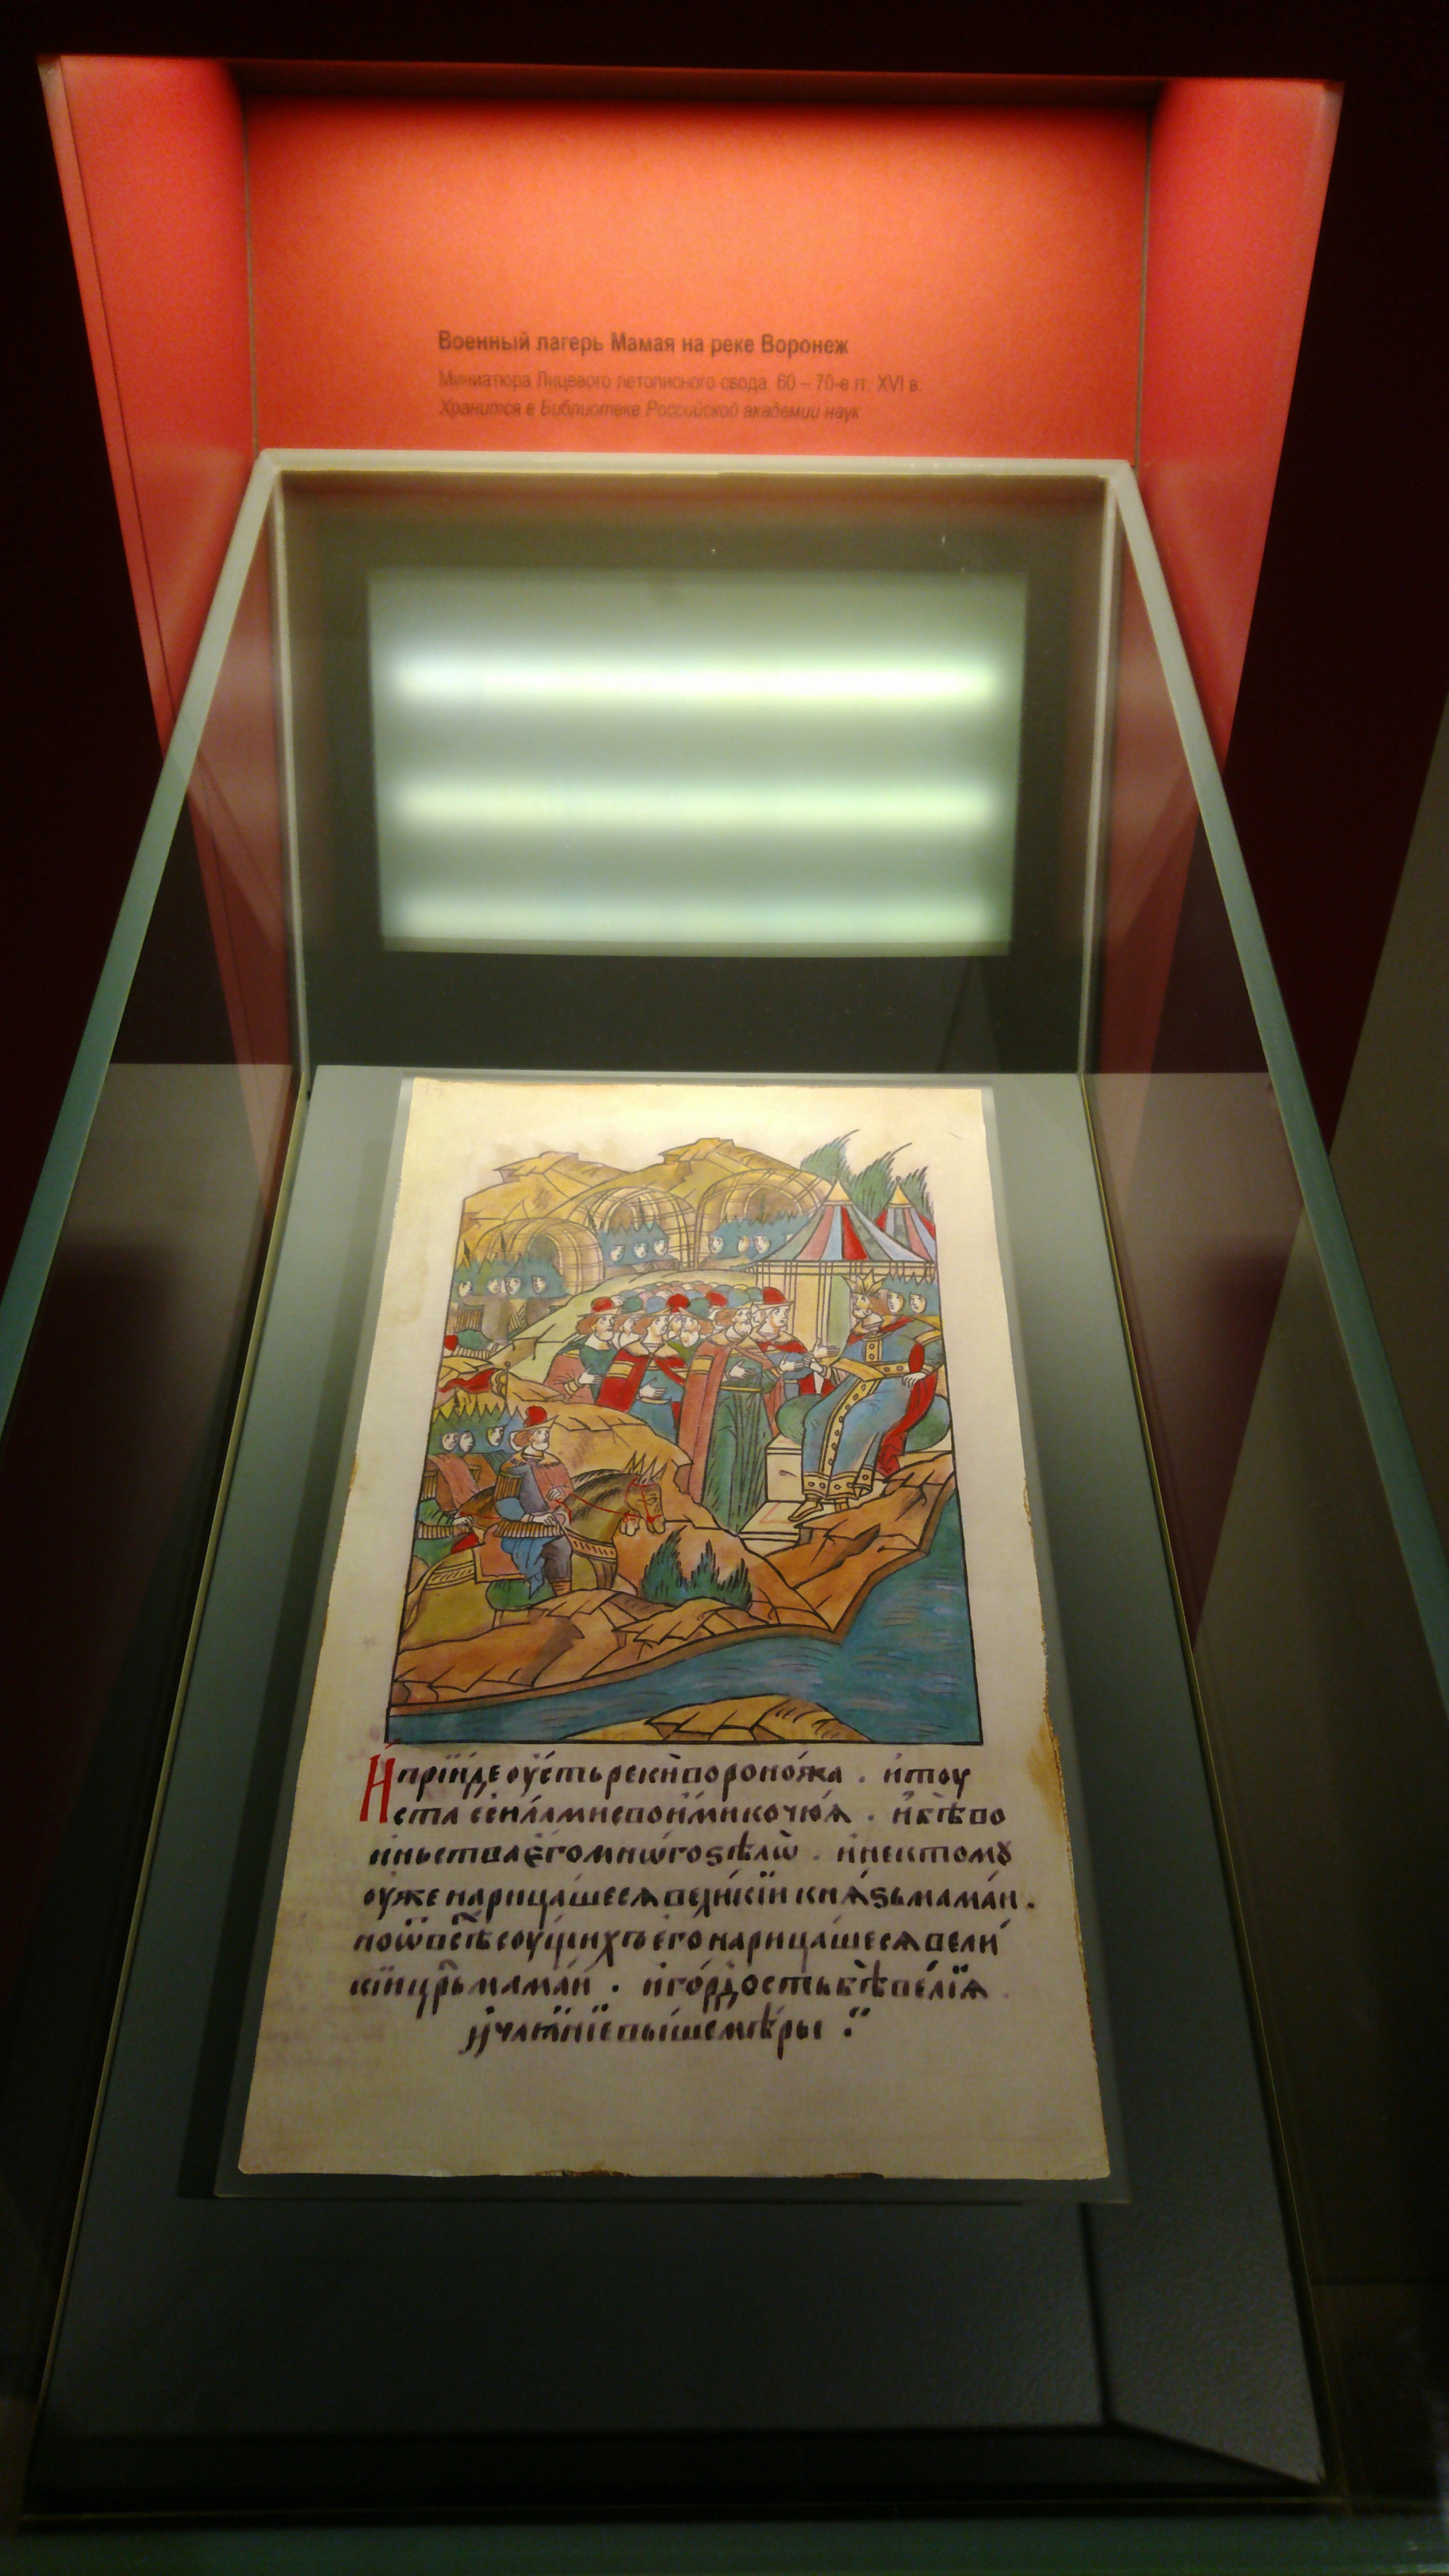 Военный лагерь Мамая на реке Воронеж
Миниатюра Лицевого летописного свода. 60 – 70-е гг. XVI в.
Хранится в Библиотеке Российской академии наук
И҆ прїи́де оу҆́сть реки̏ вороно́жа . и҆ тоу
ста сѐ и҆ла́мисвои́ми кочю́ѧ . и҆ бѣ̀ во
иньства є҆го мнѡ́го ѕѣлѡ̀ . и҆ не ктомꙋ
оу҆же нарица́шеесѧ вели́кїи кнѧ́ѕь мама́и .
но ѿ всѣ̑х соу́щихъ е҆го̀ нарица́шесѧ вели́
кїи цр҃ь мама́и . и҆ го́рдость бѣ̀ ве́лїѧ
и҆ ча́ѧнїе вы́ше мѣ́ры ⁘